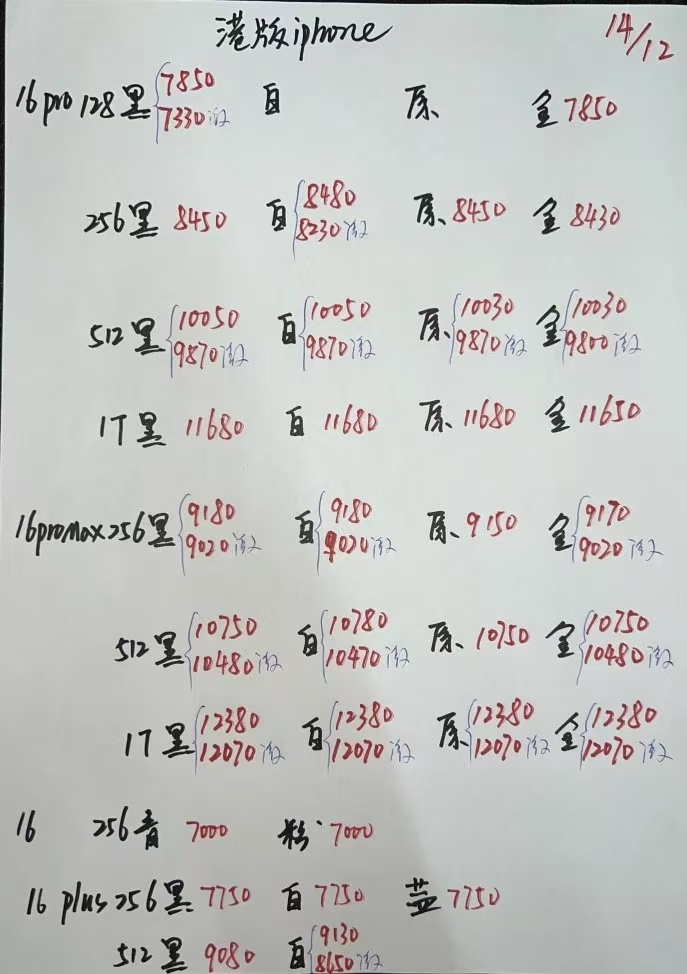 港版iphone 14/12
16pro 128黑 7850 白 原、 金 7850
7330激
256黑 8450 白 8480 原、8450 金 8430
8230激
512黑 10050 白 10050 原、10030 金 10030
9870激 9870激 9870激 9800激
1T黑 11680 白 11680 原、11680 金 11650
16promax256黑 9180 白 9180 原、9150 金 9170
9020激 9020激 9020激
512黑 10750 白 10780 原、10750 金 10750
10480激 10470激 10480激
1T黑 12380 白 12380 原、12380 金 12380
12070激 12070激 12070激 12070激
16 256青 7000 粉 7000
16 plus 256黑 7750 白 7750 蓝 7750
512黑 9080 白 9130
8650激